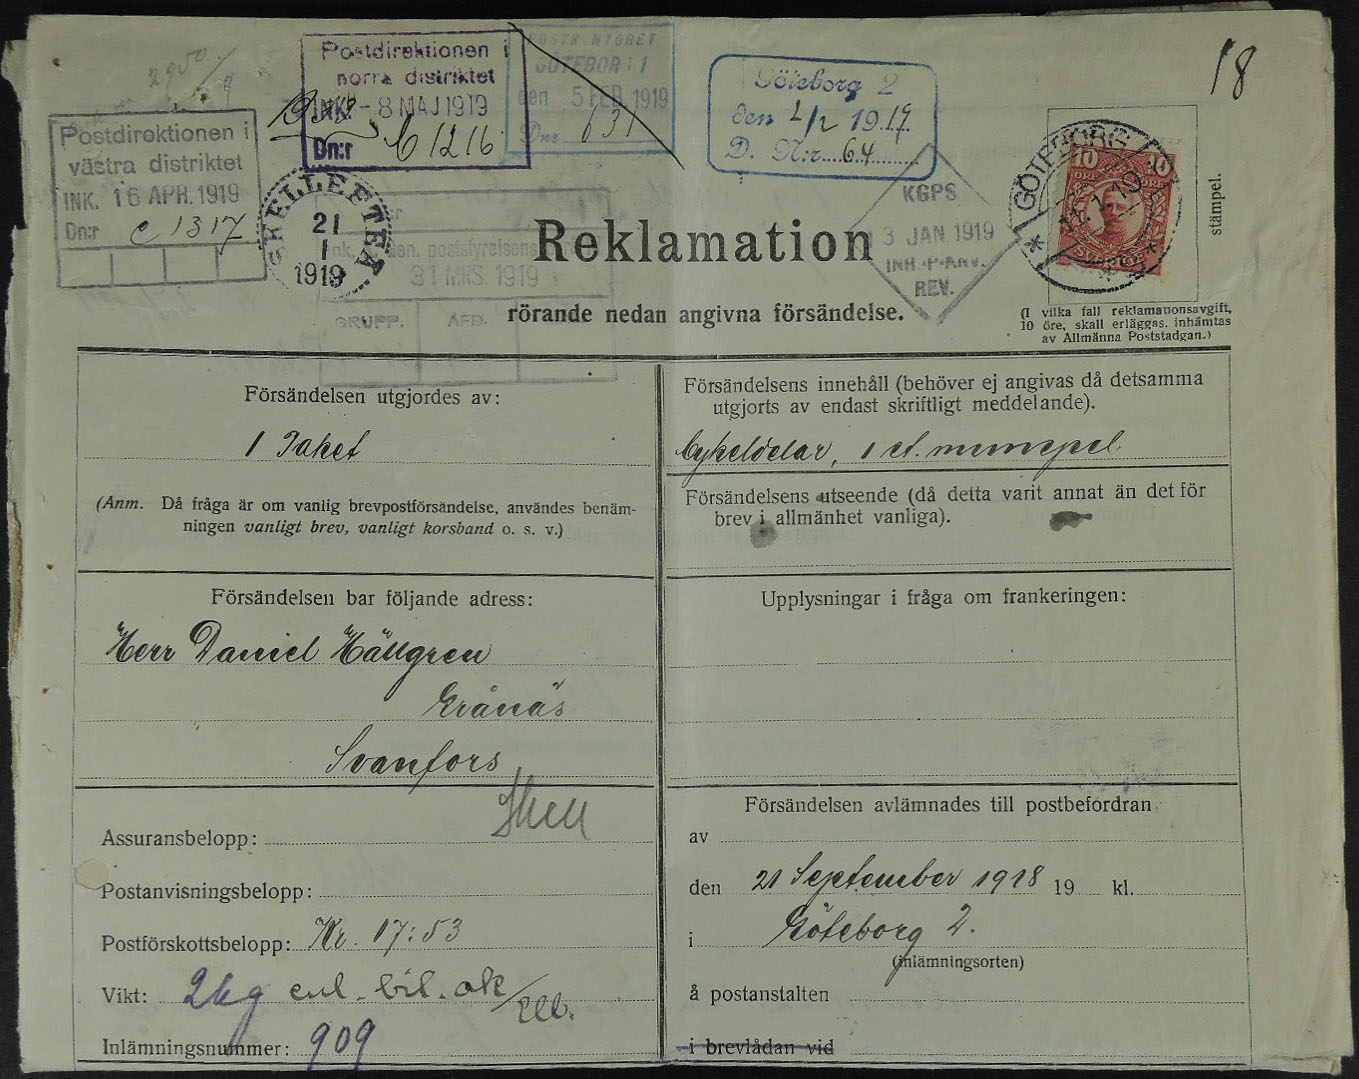 18
Postdirektionen i
norra distriktet
INK. - 8 MAJ 1919
Dn:r C 1216
GÖTEBORG 1
den 5 FEB 1919
Dnr 631
Göteborg 2
den 2/2 1919
D. N:r 64
Postdirektionen i
västra distriktet
INK. 16 APR. 1919
Dn:r C 1317
SKELLEFTEÅ
21
1
1919
Ink. den. poststyrelsens
31 MRS. 1919
GRUPP. AFD.
KGPS
3 JAN 1919
INR.-P-ANV.
REV.
GÖTEBORG
17.1.19
10 ÖRE 10 ÖRE
SVERIGE
stämpel.
Reklamation
rörande nedan angivna försändelse.
(I vilka fall reklamationsavgift,
10 öre, skall erläggas, inhämtas
av Allmänna Poststadgan.)
Försändelsen utgjordes av:
1 Paket
(Anm. Då fråga är om vanlig brevpostförsändelse, användes benäm-
ningen vanligt brev, vanligt korsband o. s. v.)
Försändelsens innehåll (behöver ej angivas då detsamma
utgjorts av endast skriftligt meddelande).
Cykeldelar, 1 st.
Försändelsens utseende (då detta varit annat än det för
brev i allmänhet vanliga).
Försändelsen bar följande adress:
Herr Daniel Hällgren
Granäs
Svanfors
Upplysningar i fråga om frankeringen:
Assuransbelopp:
Postanvisningsbelopp:
Postförskottsbelopp: Kr. 17:53
Vikt: 2 kg enl. bil. ok
Inlämningsnummer: 909
Försändelsen avlämnades till postbefordran
av
den 21 September 1918 19 kl.
i Göteborg 2.
(inlämningsorten)
å postanstalten
i brevlådan vid